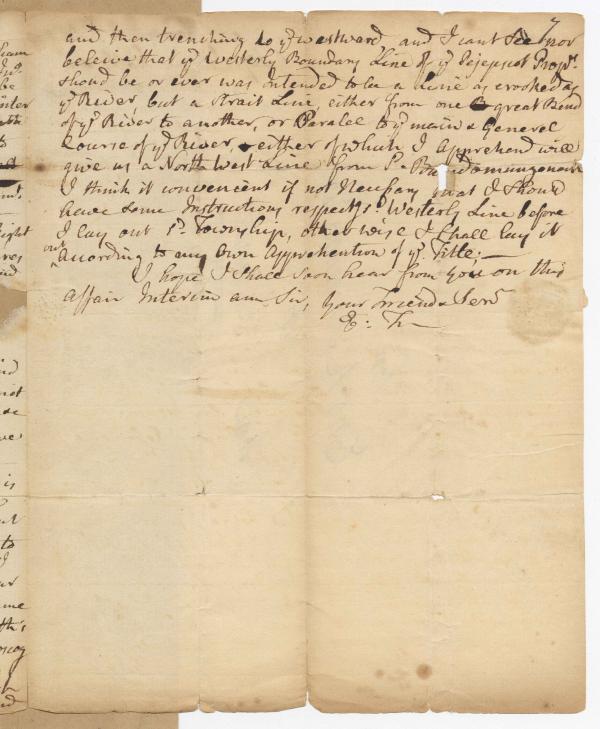 and then trenching to ye westward, and I cant See nor
beleive that ye Westerly Boundary Line of ye Pejepset Propr.
should be or ever was Intended to be a Line as crooked as
ye River, but a Strait Line, either from one great Bend
of ye River to another, or Paralel to ye main & General
Course of ye River, either of which I Apprehend will
give us a North West Line from
I think it convenient if not Necessary that I Should
have some Instructions respectg sd. Westerly Line before
I lay out sd. Township, otherwise I Shall lay it
out Acording to my Own Apprehention of ye Title;—
I hope I Shall Soon hear from you on this
Affair Interim am Sir, your Friend & Servt
E: T—